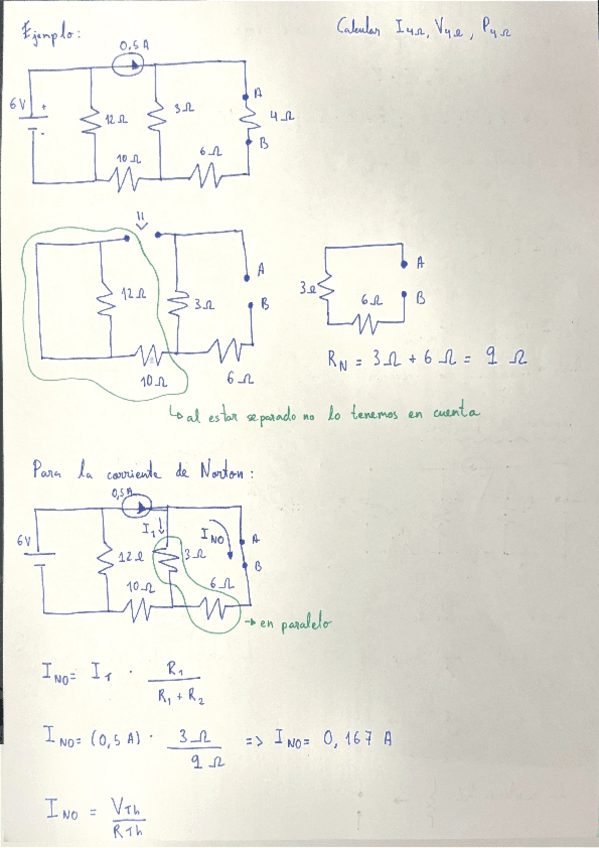 Ejemplo:
Calcular I4Ω, V4Ω, P4Ω
0,5A
6V
+
-
12Ω
3Ω
A
4Ω
B
10Ω
6Ω
12Ω
3Ω
A
B
10Ω
6Ω
3Ω
6Ω
A
B
RN = 3Ω + 6Ω = 9Ω
↳ al estar separado no lo tenemos en cuenta
Para la corriente de Norton:
0,5A
6V
I1 ↓
INO
12Ω
3Ω
A
B
10Ω
6Ω
→ en paralelo
INO = IT · R1 / (R1 + R2)
INO = (0,5 A) · 3Ω / 9Ω => INO = 0,167 A
INO = VTh / RTh